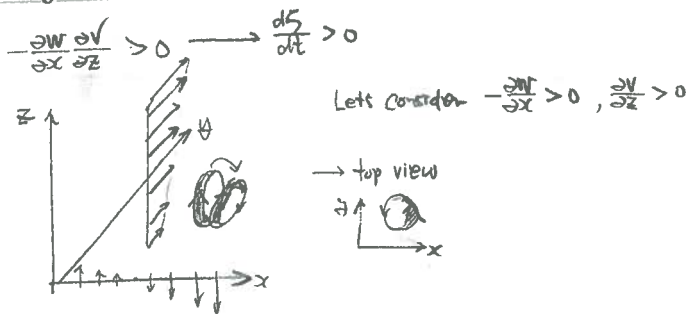 -∂w/∂x ∂v/∂z > 0 → dζ/dt > 0
Lets consider -∂w/∂x > 0 , ∂v/∂z > 0
z
→ top view
x
x